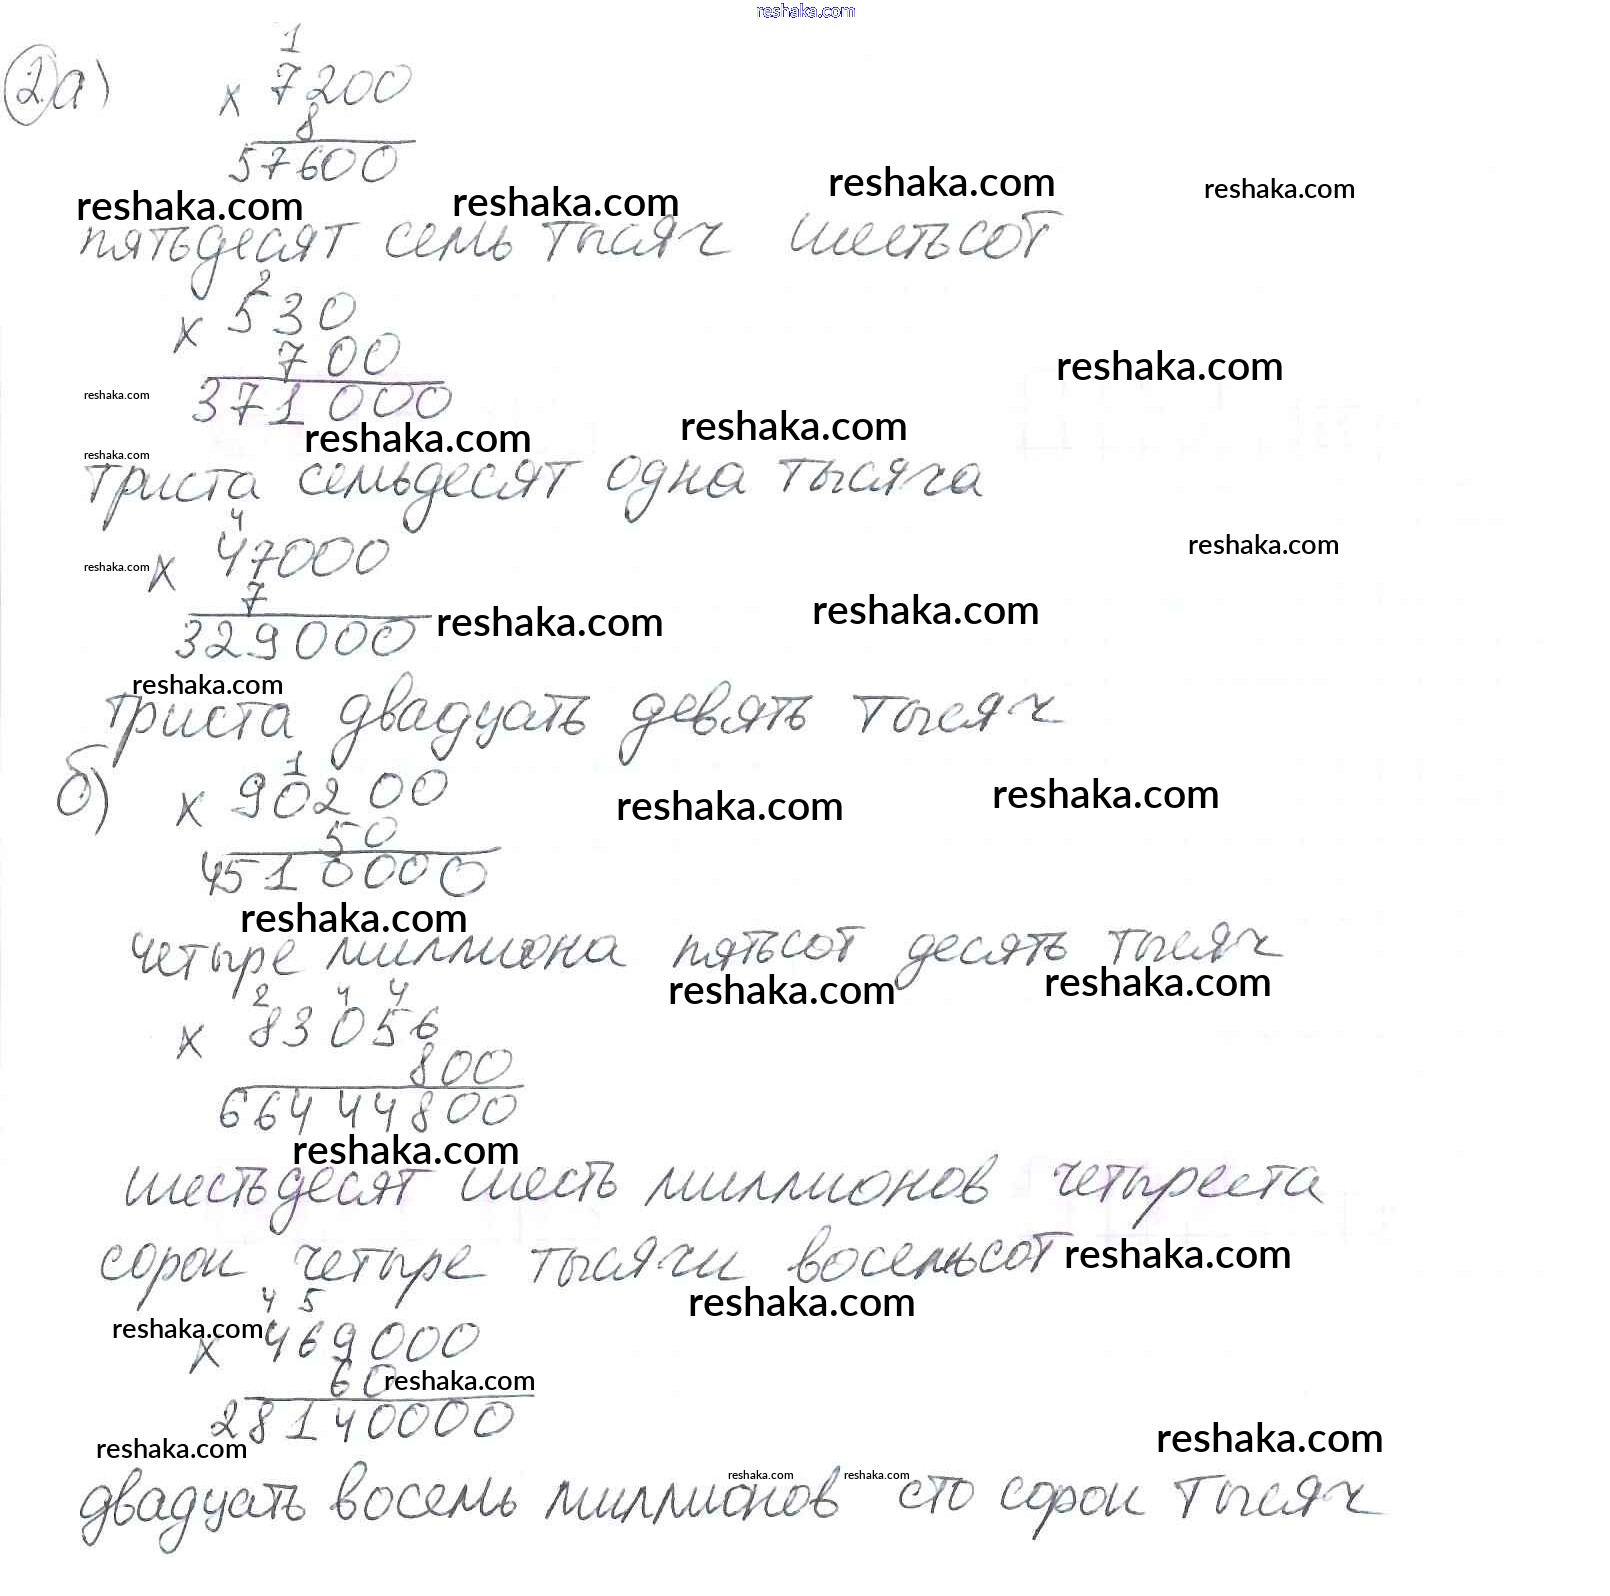 reshaka.com
1
2 а) × 7200
8
57600
reshaka.com reshaka.com reshaka.com reshaka.com
пятьдесят семь тысяч шестьсот
2
× 530
700
reshaka.com
371 000
reshaka.com
reshaka.com reshaka.com
reshaka.com
триста семьдесят одна тысяча
4
× 47000
reshaka.com
reshaka.com
7
reshaka.com reshaka.com
329000
reshaka.com
триста двадцать девять тысяч
1
б) × 90200
reshaka.com reshaka.com
50
4510000
reshaka.com
четыре миллиона пятьсот десять тысяч
reshaka.com reshaka.com
2 4 4
× 83056
800
66444800
reshaka.com
шестьдесят шесть миллионов четыреста
сорок четыре тысячи восемьсот
reshaka.com
reshaka.com
4 5
reshaka.com
× 469000
60
reshaka.com
28140000
reshaka.com
reshaka.com
reshaka.com reshaka.com
двадцать восемь миллионов сто сорок тысяч